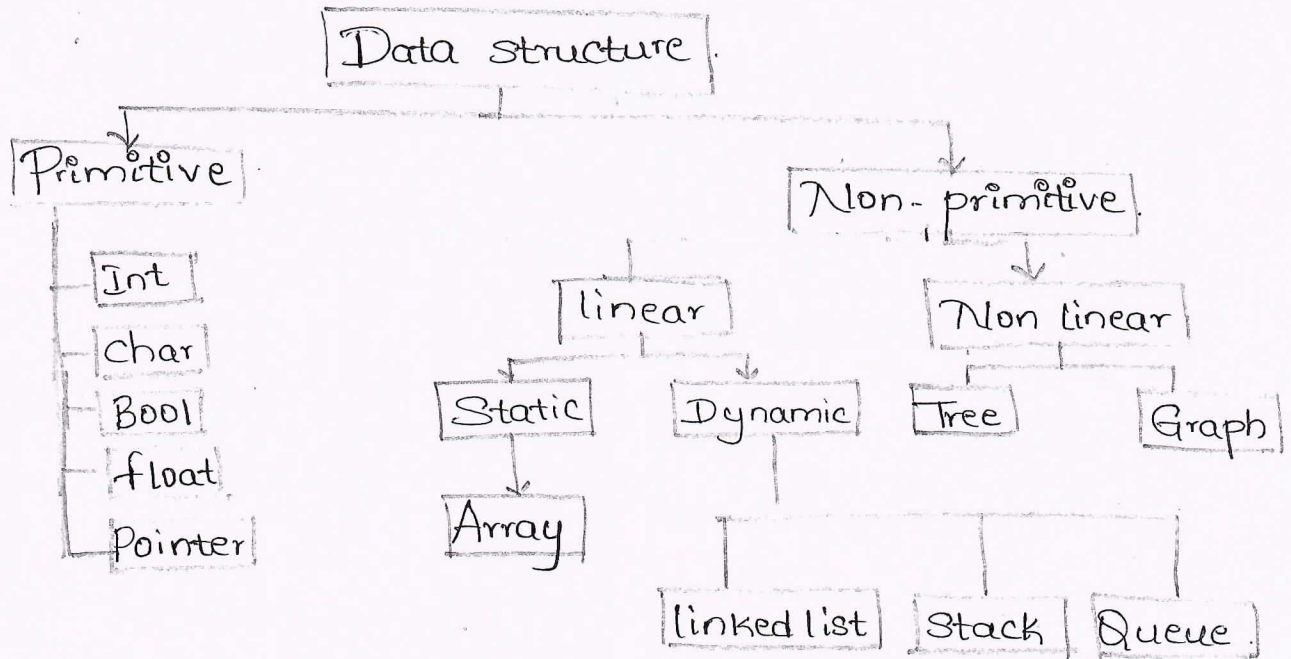 Data structure
Primitive
Non-primitive.
Int
char
Bool
float
Pointer
linear
Non linear
Static
Dynamic
Tree
Graph
Array
linked list
Stack
Queue.